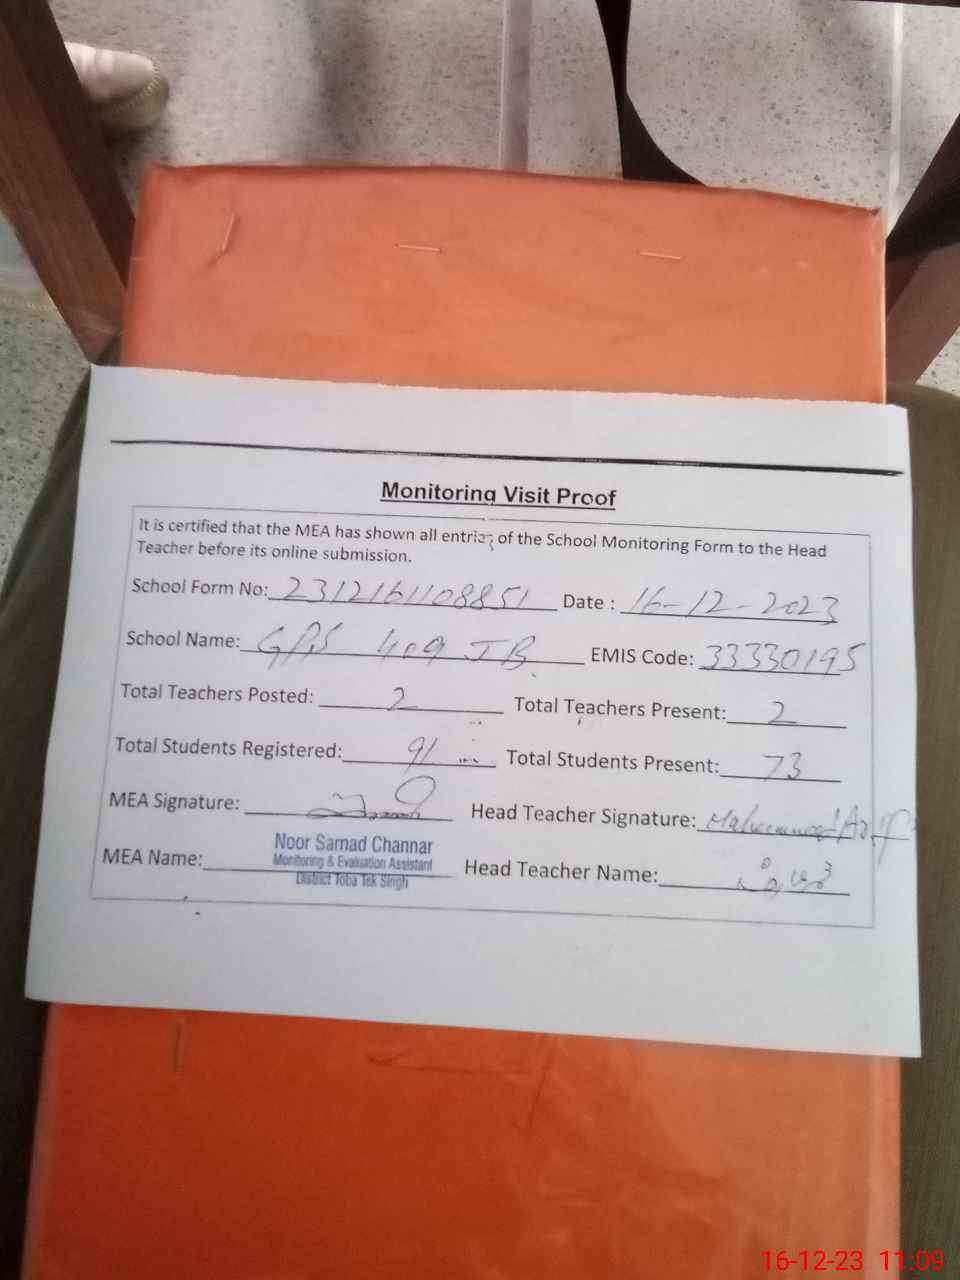 Monitoring Visit Proof
It is certified that the MEA has shown all entries of the School Monitoring Form to the Head
Teacher before its online submission.
School Form No: 2312161108851 Date : 16-12-2023
School Name: GPS 409 JB EMIS Code: 33330195
Total Teachers Posted: 2 Total Teachers Present: 2
Total Students Registered: 91 Total Students Present: 73
MEA Signature: Head Teacher Signature: Muhammad Arif
MEA Name: Noor Samad Channar
Monitoring & Evaluation Assistant
District Toba Tek Singh
Head Teacher Name:
16-12-23 11:09